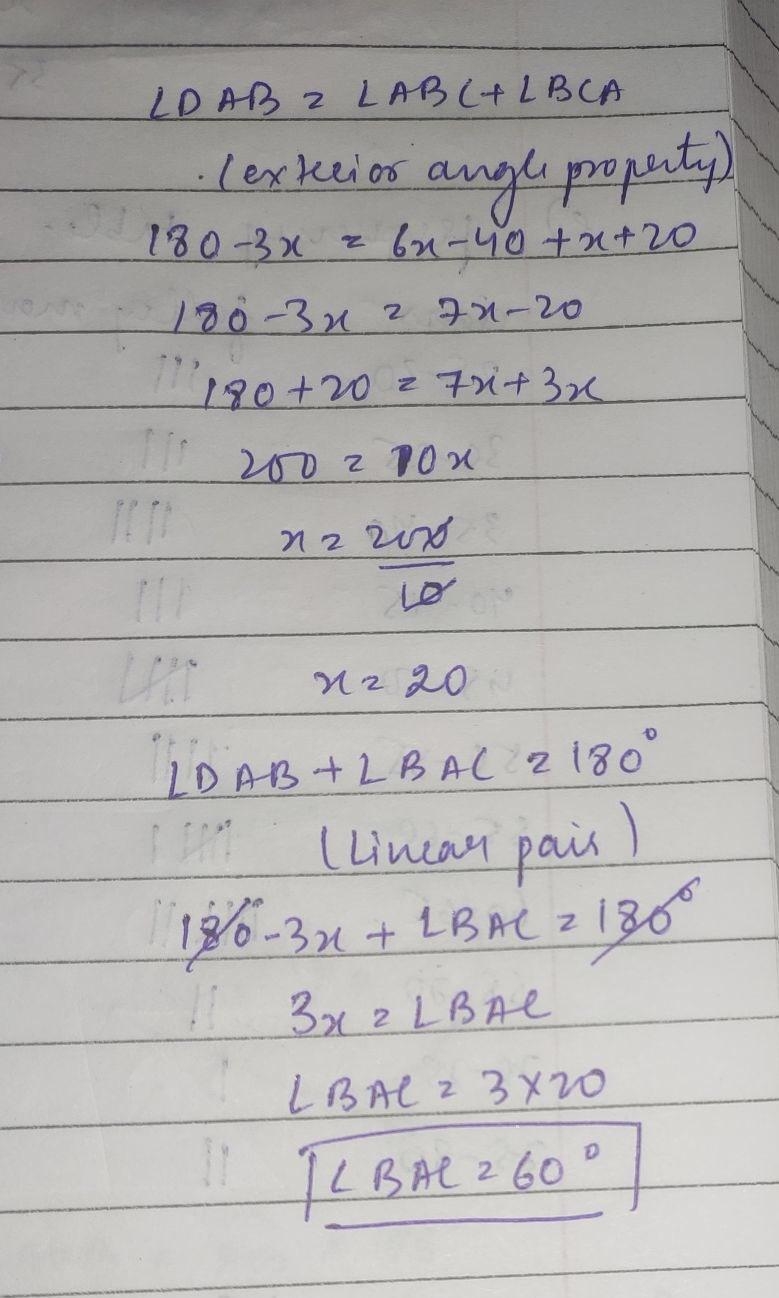 ∠DAB = ∠ABC + ∠BCA
(exterior angle property)
180 - 3x = 6x - 40 + x + 20
180 - 3x = 7x - 20
180 + 20 = 7x + 3x
200 = 10x
x = 200
10
x = 20
∠DAB + ∠BAC = 180°
(Linear pair)
180 - 3x + ∠BAC = 180°
3x = ∠BAC
∠BAC = 3 × 20
∠BAC = 60°